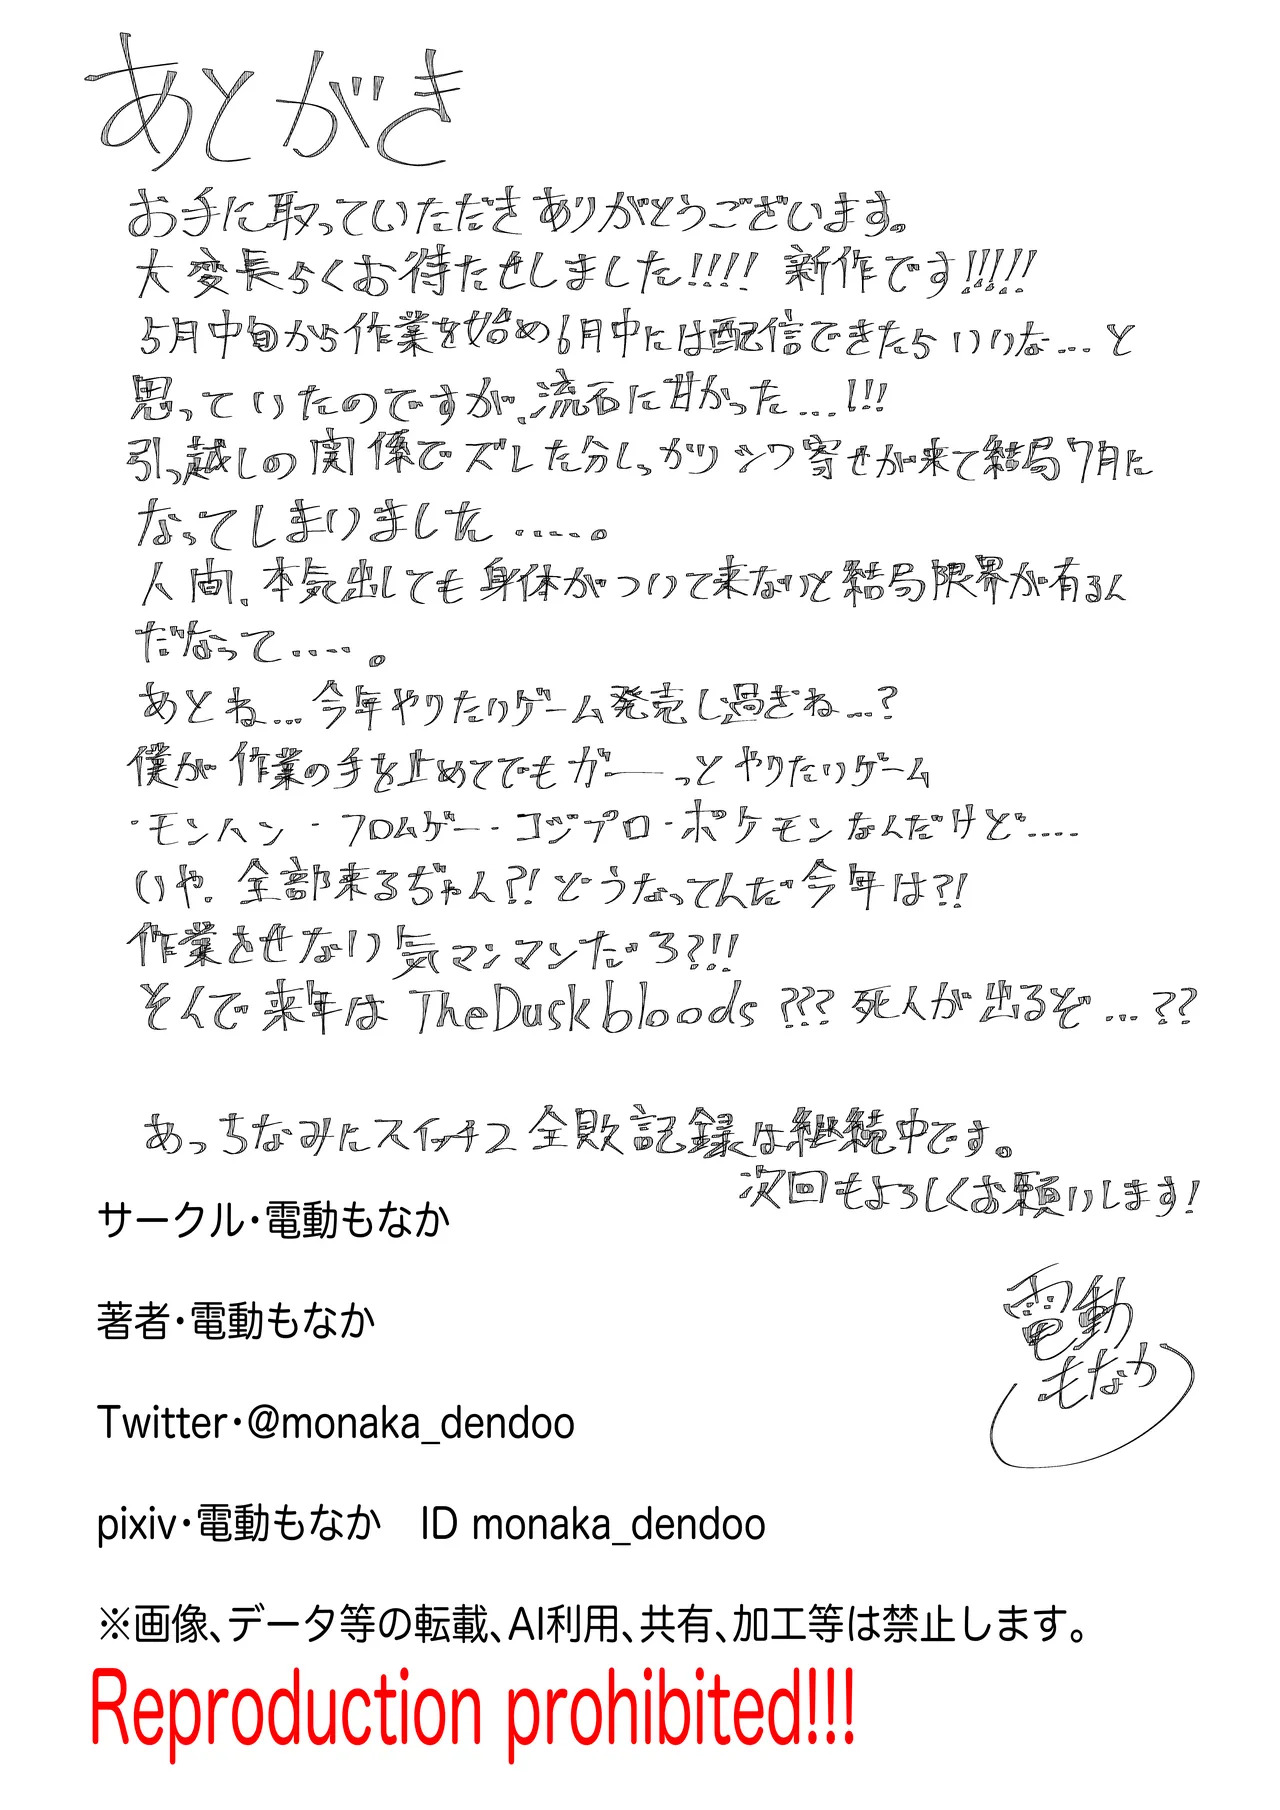 あとがき
お手に取っていただきありがとうございます。
大変長らくお待たせしました!!!! 新作です!!!!!
5月中旬から作業を始め6月中には配信できたらいいな...と
思っていたのですが、流石に甘かった...!!!
引っ越しの関係でズレた分しっかりシワ寄せが来て結局7月に
なってしまいました.....。
人間、本気出しても身体がついて来ないと結局限界が有るん
だなって....。
あとね...今年やりたいゲーム発売し過ぎね...?
僕が作業の手を止めてでもガーーっとやりたいゲーム
・モンハン・フロムゲー・コジプロ・ポケモンなんだけど....
いや、全部来るぢゃん?! どうなってんだ今年は?!
作業させない気マンマンだろ?!!
そんで来年は TheDuskbloods ??? 死人が出るぞ...??
あっちなみにスイッチ2全敗記録は継続中です。
次回もよろしくお願いします!
サークル・電動もなか
著者・電動もなか
電動
もなか
Twitter・@monaka_dendoo
pixiv・電動もなか　ID monaka_dendoo
※画像、データ等の転載、AI利用、共有、加工等は禁止します。
Reproduction prohibited!!!